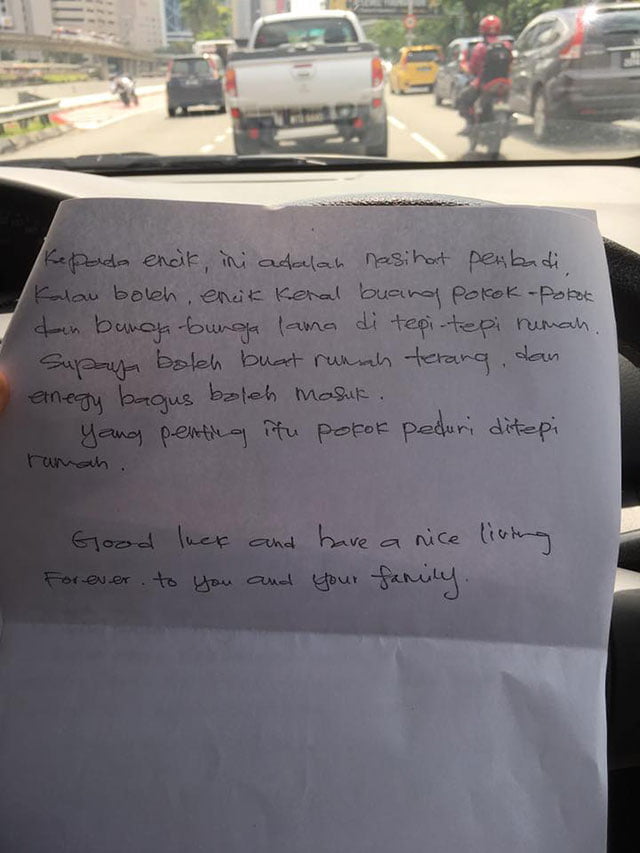 Kepada encik, ini adalah nasihat peribadi,
Kalau boleh, encik kenal buang pokok-pokok
dan bunga-bunga lama di tepi-tepi rumah.
Supaya boleh buat rumah terang, dan
enegy bagus boleh masuk.
Yang penting itu pokok peduri ditepi
rumah.
Good luck and have a nice living
Forever. to you and your family.